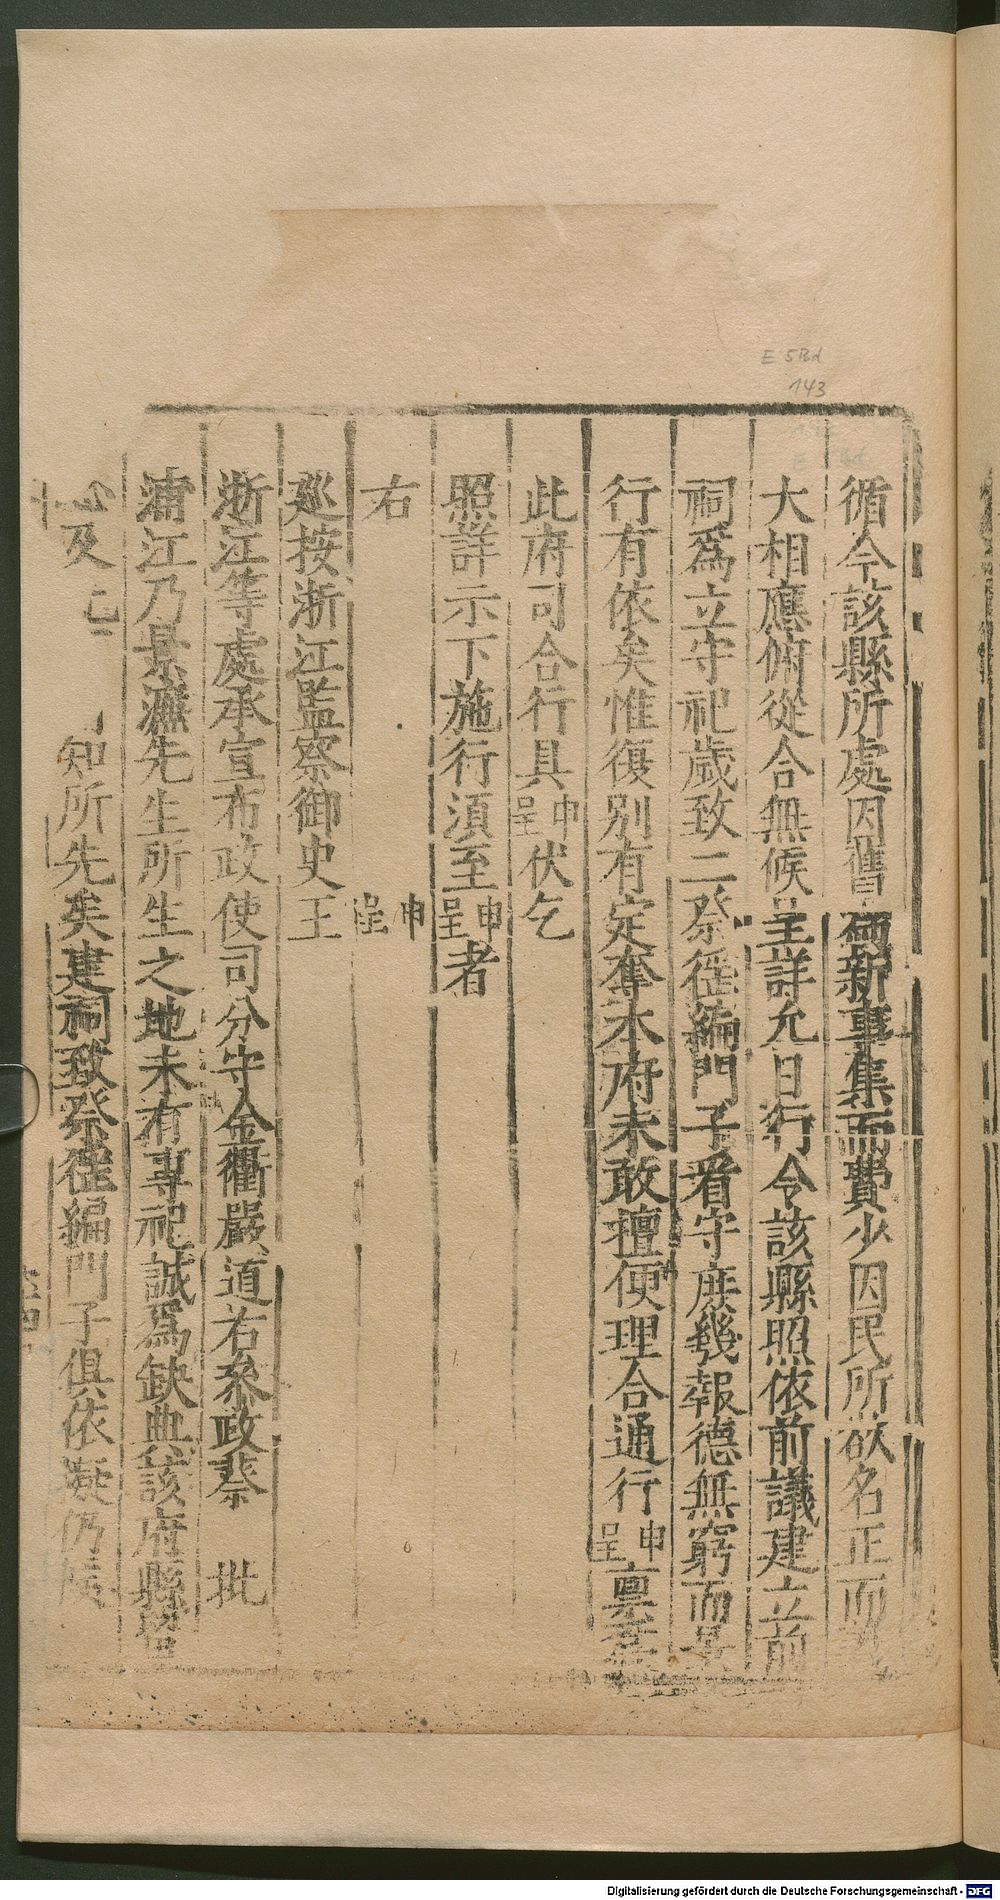 E 5Bd
143
循令該縣所處因舊爲新事集而費少因民所欲名正而
大相應俯從合無候呈詳允日行令該縣照依前議建立前
祠爲立守祀歲致二祭徑編門子看守庶幾報德無窮而景
行有依矣惟復別有定奪本府未敢擅便理合通行申呈稟
此府司合行具申呈伏乞
照詳示下施行須至申呈者
右 申呈
巡按浙江監察御史王
浙江等處承宣布政使司分守金衢嚴道右參政蔡 批
浦江乃景濂先生所生之地未有專祀誠爲缺典該府縣
及 知所先矣建祠致祭徑編門子俱依擬仍
Digitalisierung gefördert durch die Deutsche Forschungsgemeinschaft - DFG